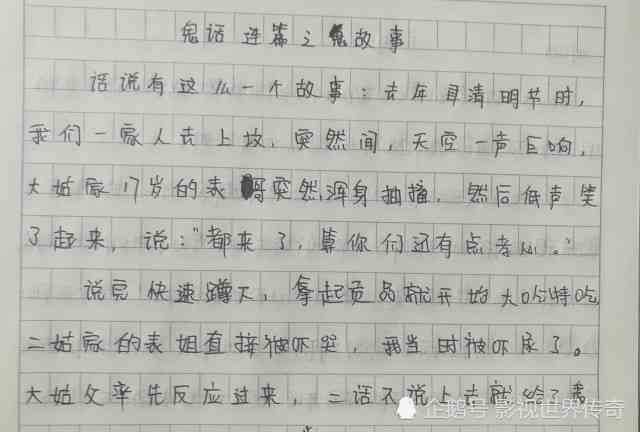 鬼话连篇之鬼故事
话说有这么一个故事：去年自清明节时，
我们一家人去上坟，突然间，天空一声巨响，
大姑家17岁的表哥突然浑身抽搐，然后低声笑
了起来，说："都来了，算你们还有点孝心。"
说完快速蹲下，拿起贡品就开始大吃特吃
二姑家的表姐直接被吓哭，我当时被吓尿了。
大姑父率先反应过来，二话不说上去就给了表
企鹅号 影视世界传奇